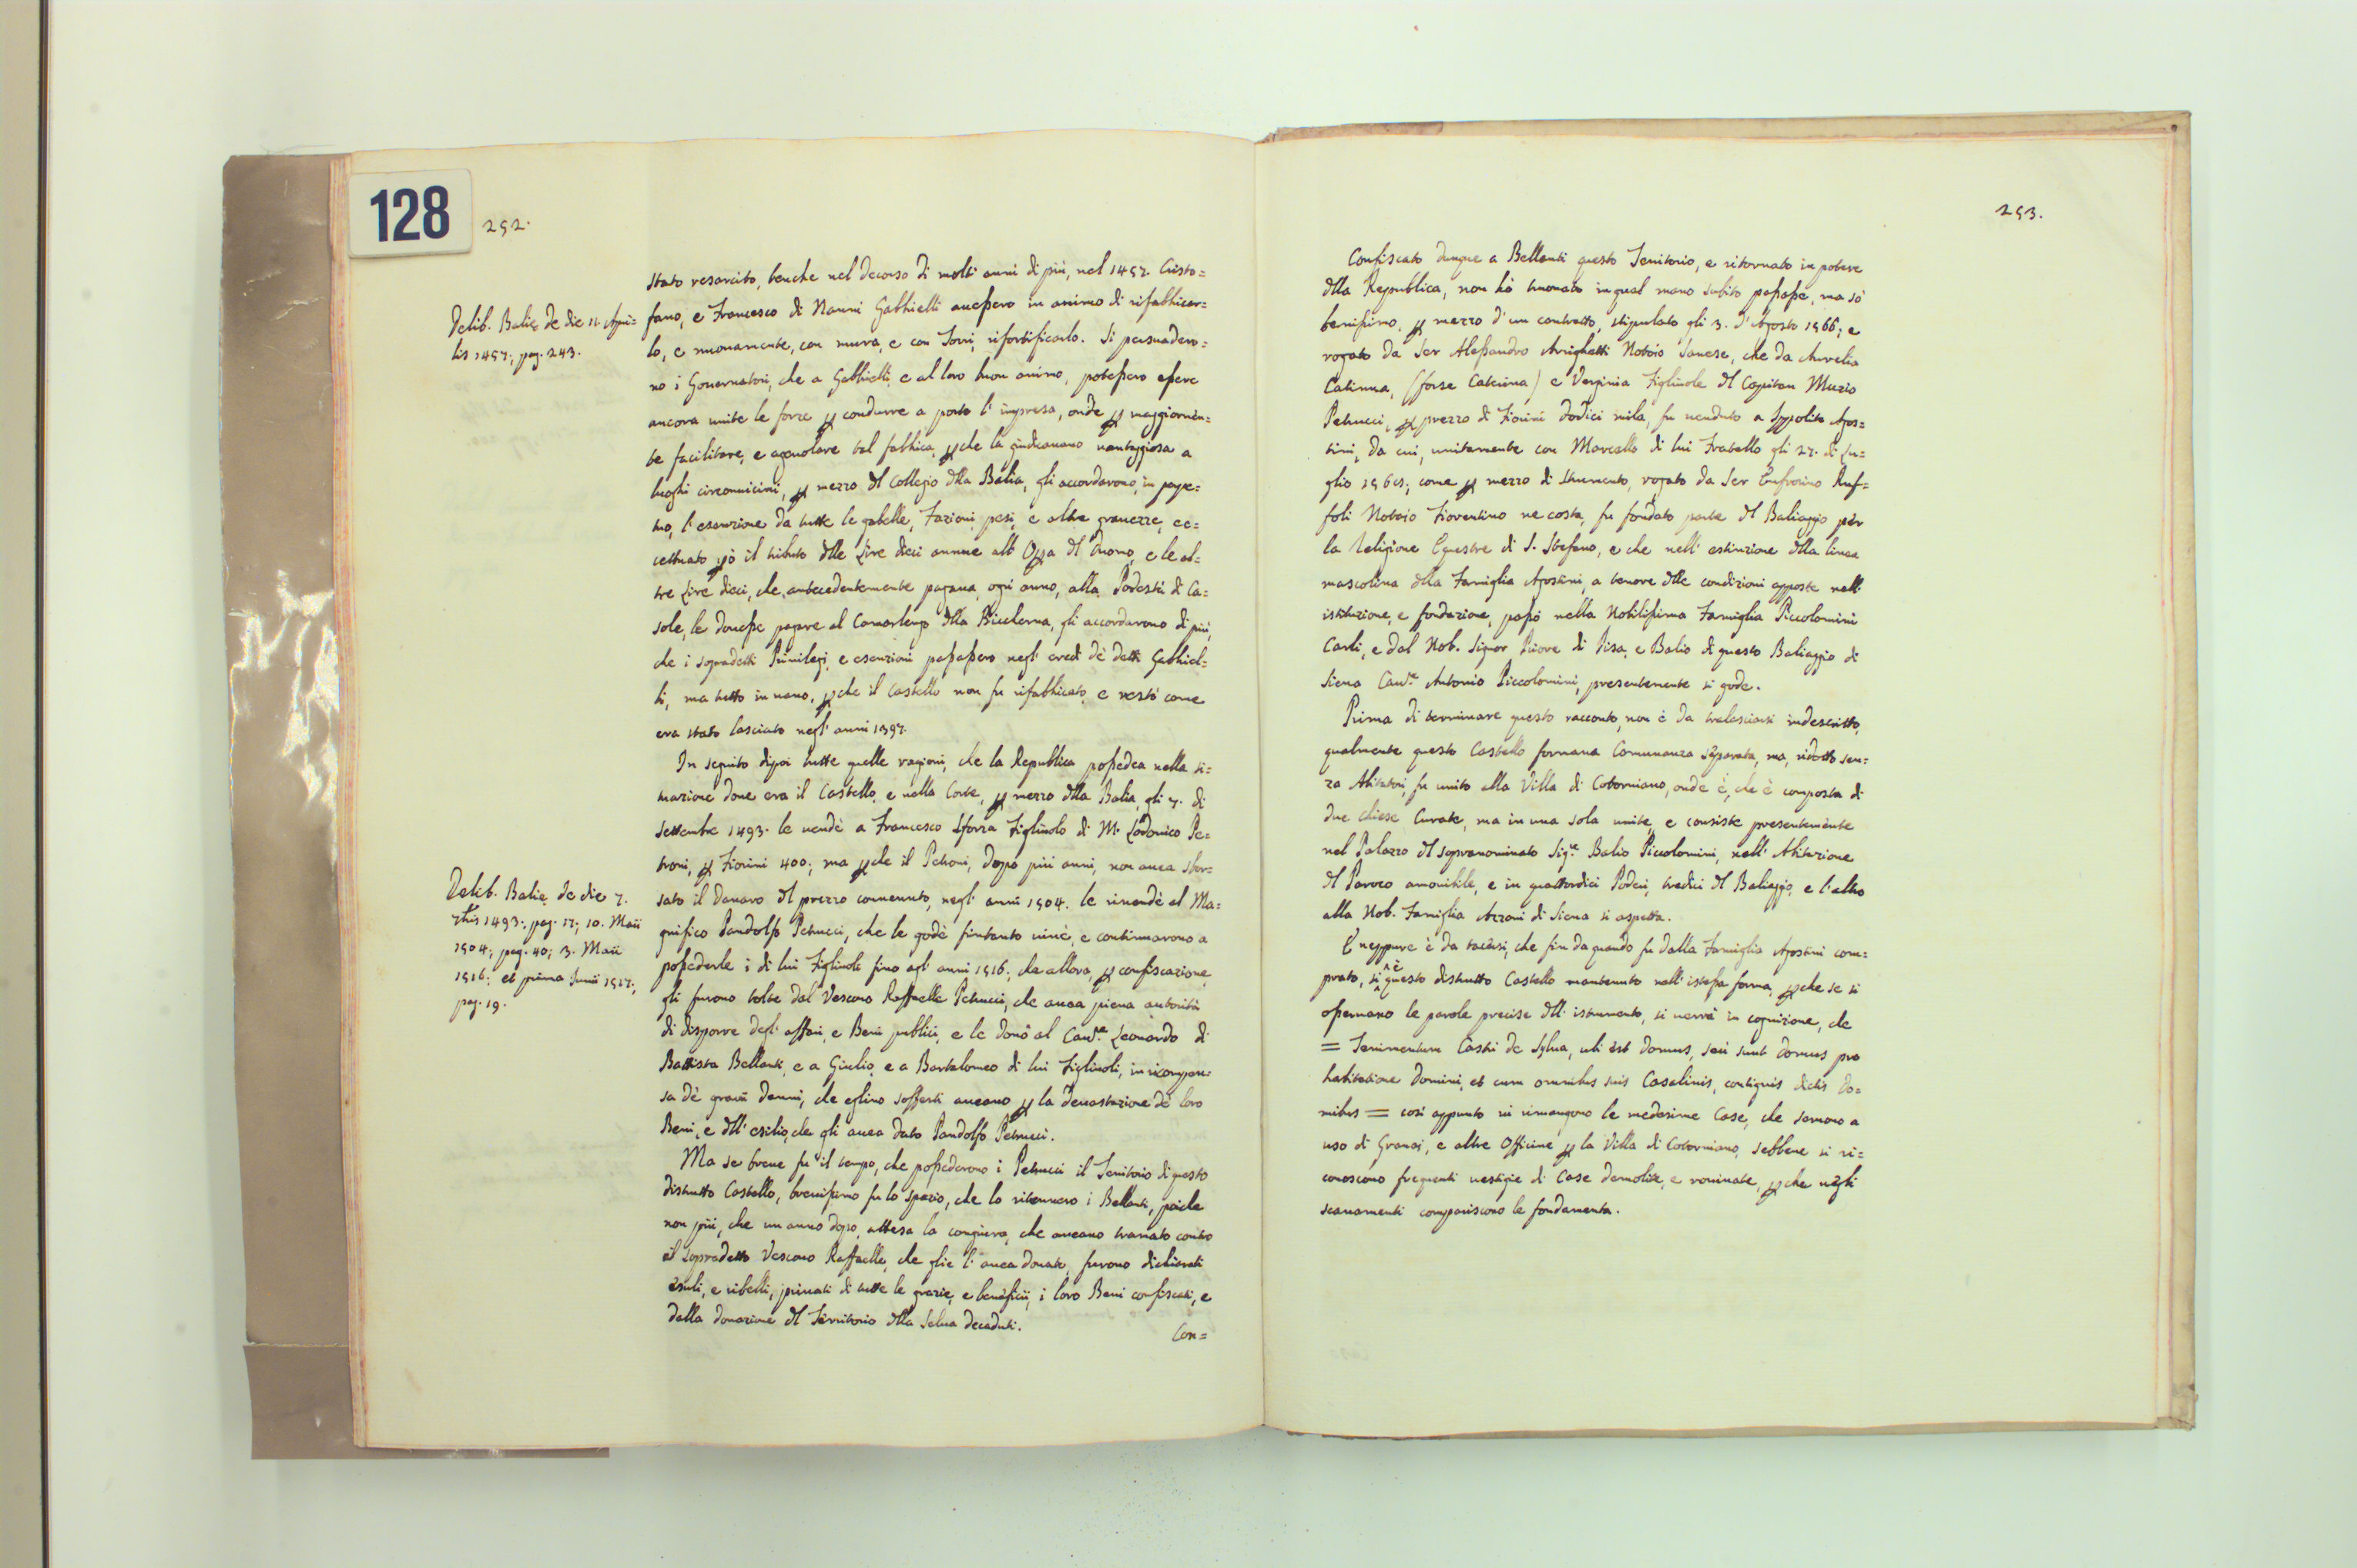 128
252.
Delib. Balie de die 11. Apri=
lis 1457; pag. 243.
stato resarcito, benche nel decorso di molti anni di più, nel 1457. Cristo=
fano, e Francesco di Nanni Gabbrielli auessero in animo di rifabbricar=
lo, e nuouamente, con mura, e con Torri, rifortificarlo. Si persuadero=
no i Gouernatori, che a Gabbrielli, e al loro buon animo, potessero essere
ancora unite le forze p condurre a porto l'impresa, onde p maggiormen=
te facilitare, e ageuolare tal fabbrica, pche la giudicauano uantaggiosa a
luoghi circonuicini, p mezzo dl Collegio dlla Balia, gli accordarono, in perpe=
tuo, l'esenzione da tutte le gabelle, Fazioni, pesi, e altre grauezze, ec=
cettuato pò il tributo dlle Lire dieci annue all' Opa dl Duomo, e le al=
tre Lire dieci, che, antecedentemente pagaua, ogni anno, alla Podestà di Ca=
sole, le douesse pagare al Camarlengo dlla Biccherna, gli accordarono di più,
che i sopradetti Priuilegi, e esenzioni passassero negl' eredi dè detti Gabbriel=
li, ma tutto in uano, pche il Castello non fu rifabbricato, e restò come
era stato lasciato negl' anni 1397.
In seguito dipoi tutte quelle ragioni, che la Repubblica possedea nella si=
tuazione doue era il Castello, e nella Corte, p mezzo dlla Balia, gli 7. di
Settembre 1493. le uendè a Francesco Sforza Figliuolo di M. Lodouico Pe=
troni, p Fiorini 400; ma pche il Petroni, dopo più anni, non auea sbor=
Delib. Balie de die 7.
7bris 1493; pag. 17; 10. Maii
1504; pag. 40; 3. Maii
1516; et prima Junii 1517;
pag. 19.
sato il Danaro dl prezzo conuenuto, negl' anni 1504. le riuendè al Ma=
gnifico Pandolfo Petrucci, che le godè fintanto uisse, e continuarono a
possederle i di lui Figliuoli fino agl' anni 1516; che allora, p confiscazione,
gli furono tolte dal Vescouo Raffaelle Petrucci, che auea piena autorità
di disporre degl' affari, e Beni pubblici, e le donò al Cau.re Leonardo di
Battista Bellanti, e a Giulio, e a Bartolomeo di lui Figliuoli, in ricompen=
sa dè graui danni, che eglino sofferti aueano p la deuastazione dè loro
Beni, e dll' esilio, che gli auea dato Pandolfo Petrucci.
Ma se breue fu il tempo, che possederono i Petrucci il Territorio di questo
distrutto Castello, breuissimo fu lo spazio, che lo ritennero i Bellanti, poiche
non più, che un anno dopo, attesa la congiura, che aueano tramato contro
il sopradetto Vescouo Raffaelle, che glie l'auea donato, furono dichiarati
esuli, e ribelli, priuati di tutte le grazie, e benefizii, i loro Beni confiscati, e
dalla donazione dl Territorio dlla Selua decaduti.
Con=
253.
Confiscato dunque a Bellanti questo Territorio, e ritornato in potere
dlla Repubblica, non hò trouato in qual mano subito passasse, ma sò
benissimo, p mezzo d'un contratto, stipulato gli 3. d'Agosto 1566; e
rogato da Ser Alessandro Arrighetti Notaio Sanese, che da Aurelia
Catinna, (forse Caterina) e Verginia Figliuole dl Capitan Muzio
Petrucci, p prezzo di Fiorini dodici mila, fu uenduto a Ippolito Agos=
tini, da cui, unitamente con Marcello di lui Fratello gli 27. di Lu=
glio 1569; come p mezzo di Strumento, rogato da Ser Eufrosino Ruf=
foli Notaio Fiorentino ne costa, fu fondato parte dl Baliaggio per
la Religione Equestre di S. Stefano, e che nell' estinzione dlla linea
mascolina dlla Famiglia Agostini, a tenore dlle condizioni apposte nell'
istituzione, e fondazione, passò nella Nobilissima Famiglia Piccolomini
Carli, e dal Nob. Signor Priore di Pisa, e Balio di questo Baliaggio di
Siena Cau.re Antonio Piccolomini, presentemente si gode.
Prima di terminare questo racconto, non è da tralasciarsi indescritto,
qualmente questo Castello formaua Comunanza separata, ma, ridotto sen=
za Abitatori, fu unito alla Villa di Cotorniano, onde è, che è composta di
due chiese Curate, ma in una sola unite, e consiste presentemente
nel Palazzo dl soprannominato Sig.re Balio Piccolomini, nell' Abitazione
dl Paroco amouibile, e in quattordici Poderi, tredici dl Baliaggio, e l'altro
alla Nob. Famiglia Azzoni di Siena si aspetta.
E neppure è da tacersi, che fin da quando fu dalla Famiglia Agostini com=
prato, si è questo distrutto Castello mantenuto nell' istessa forma, pche se si
osseruano le parole precise dll' istrumento, si uerrà in cognizione, che
= Tenimentum Castri de Sylua, ubi est domus, seu sunt domus pro
habitatione Domini, et cum omnibus suis Casalinis, contiguis dictis Do=
mibus = così appunto ui rimangono le medesime Case, che seruono a
uso di Granai, e altre Officine p la Villa di Cotorniano, sebbene si ri=
conoscono frequenti uestigie di Case demolite, e rouinate, pche negli
scauamenti compariscono le fondamenta.